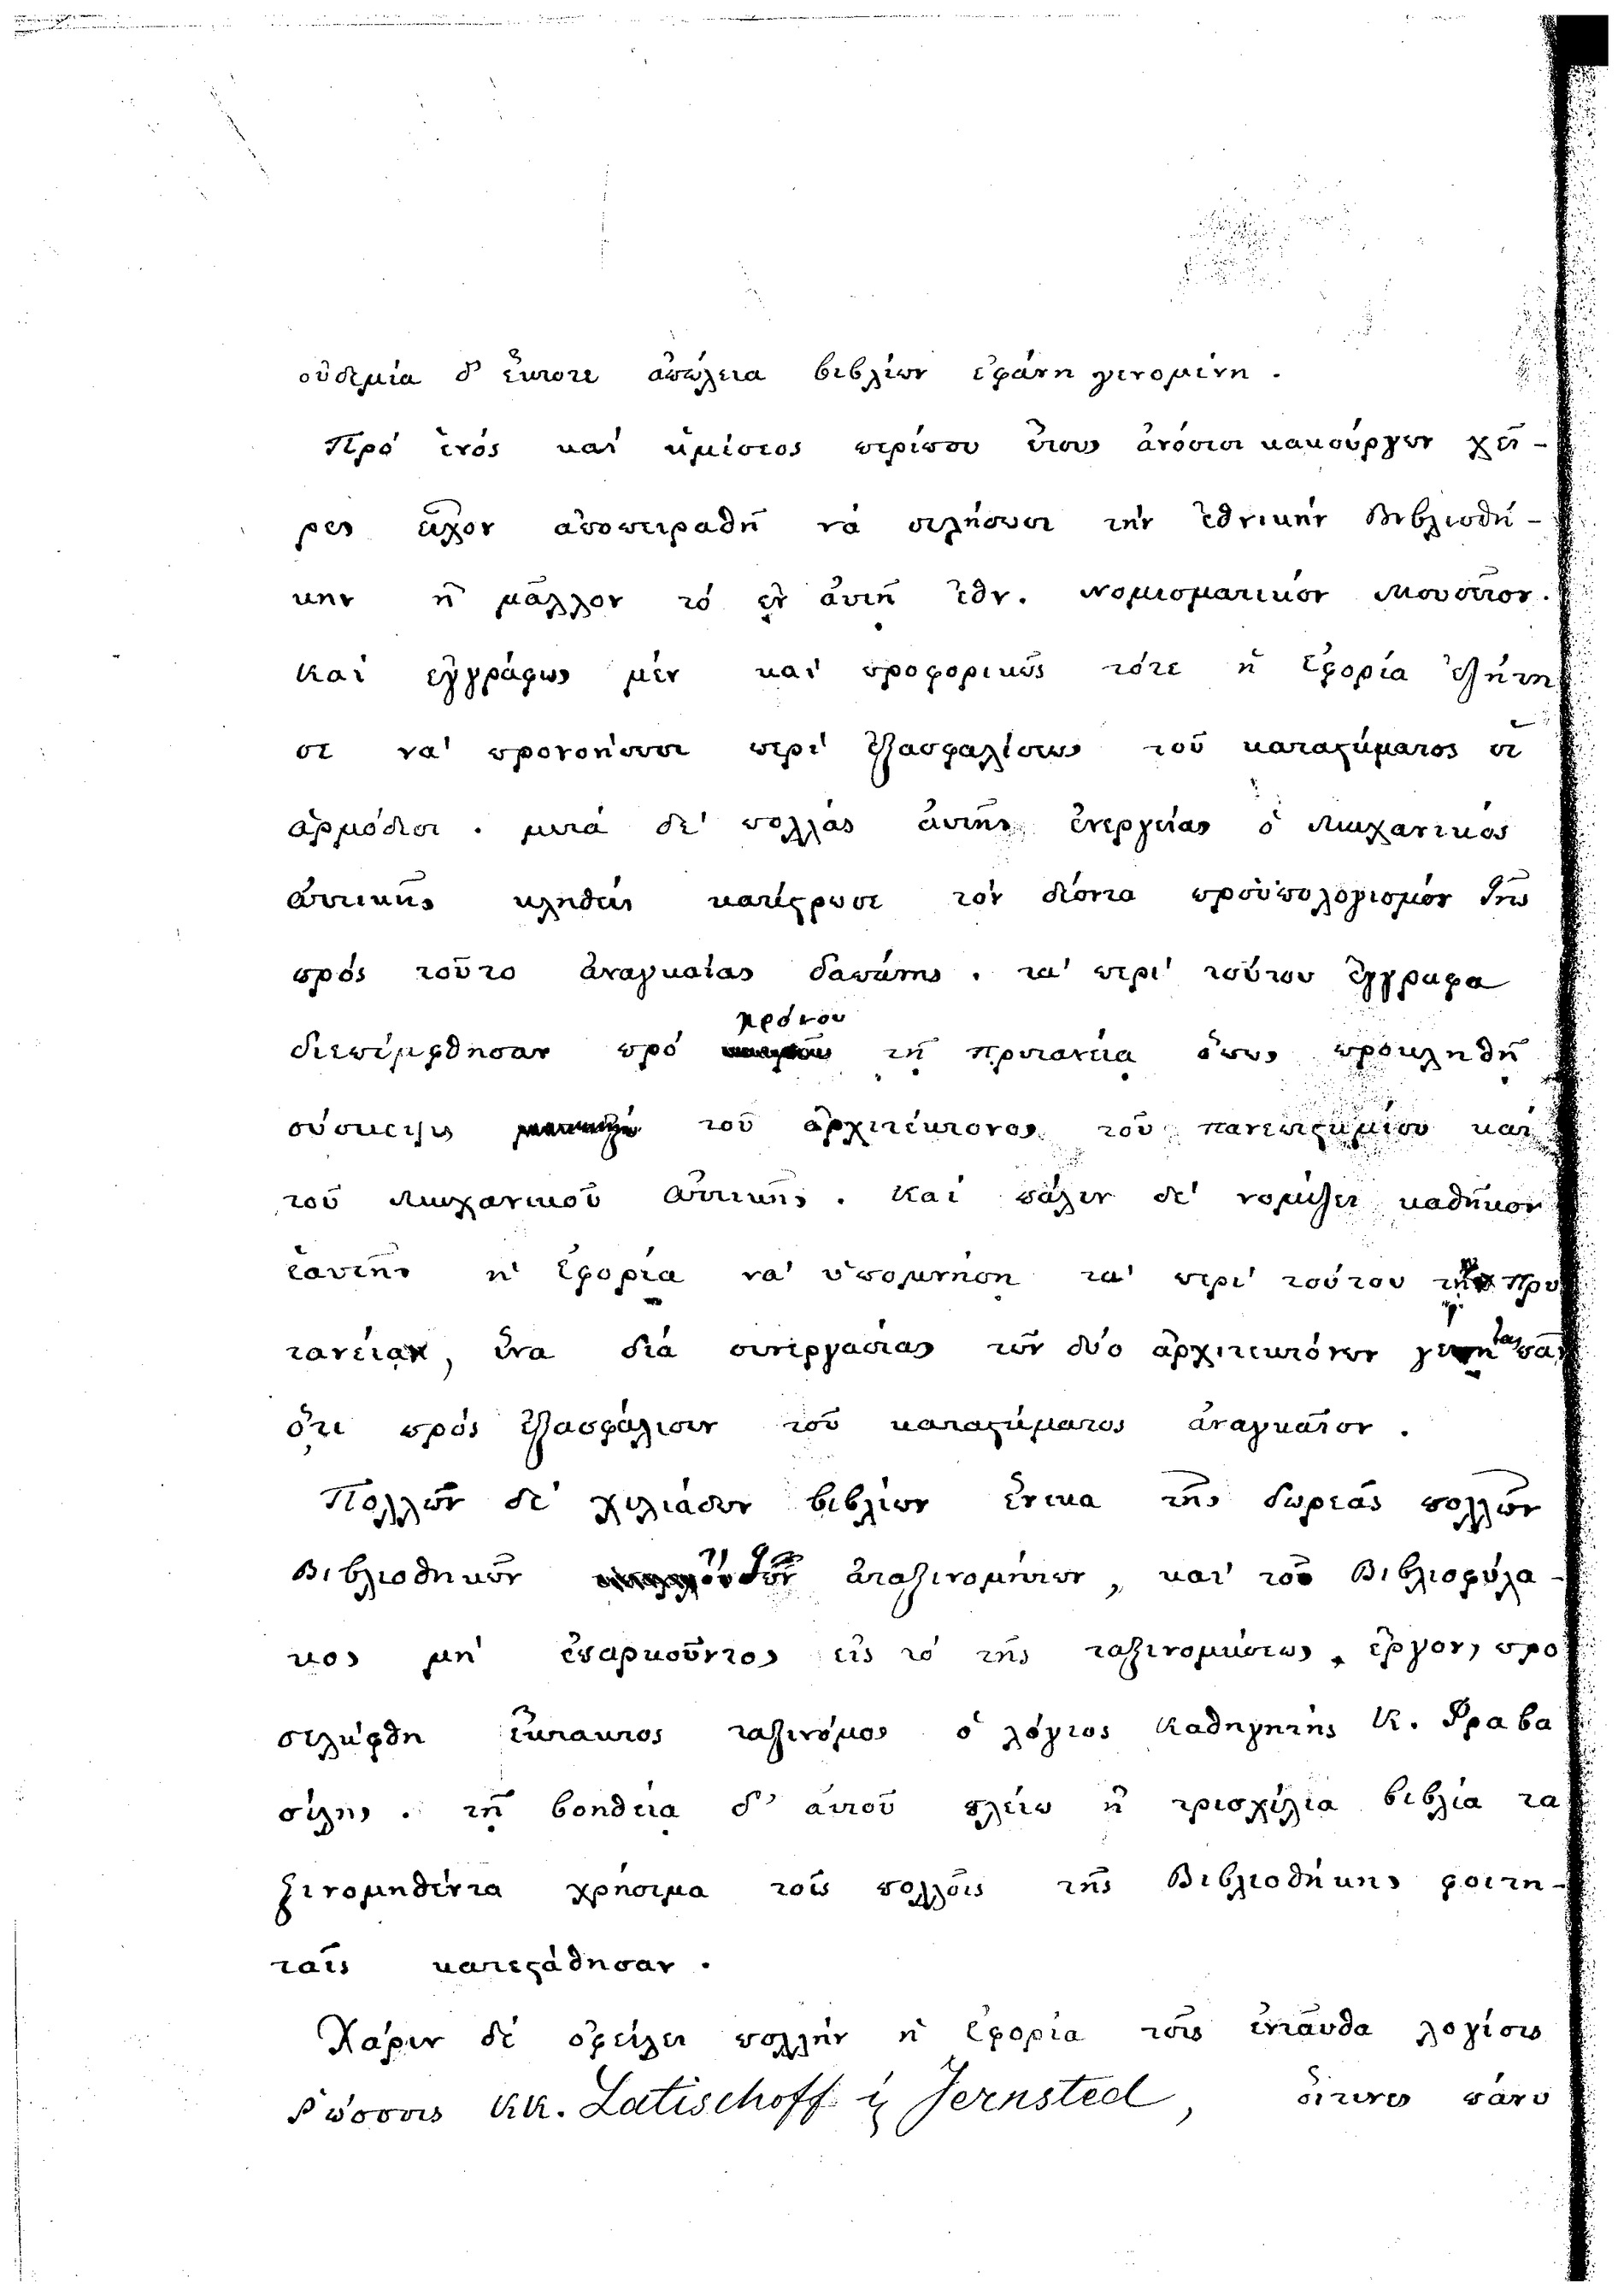 οὐδεμία δ' ἔκτοτε ἀπώλεια βιβλίων ἐφάνη γενομένη.
Πρό ἑνός καί ἡμίσεος περίπου ἔτους ἀνόσιοι κακούργων χεῖ-
ρες εἶχον ἀποπειραθῆ νά συλήσωσι τήν ἐθνικήν Βιβλιοθή-
κην ἤ μᾶλλον τό ἐν ἀυτῇ ἐθν. Νομισματικόν Μουσεῖον.
Καί ἐγγράφως μέν καί προφορικῶς τότε ἡ Ἐφορία ἐζήτη
σε νά προνοήσωσι περί ἐξασφαλίσεως τοῦ καταστήματος οἱ
ἁρμόδιοι. μετά δέ πολλάς ἀυτῆς ἐνεργείας ὁ Μηχανικός
Ἀττικῆς κληθείς κατέστρωσε τόν δέοντα προϋπολογισμόν τῆς
πρός τοῦτο ἀναγκαίας δαπάνης. τά περί τούτου ἔγγραφα
διεπέμφθησαν πρό χρόνου τῇ Πρυτανείᾳ ὅπως προκληθῇ
σύσκεψις τοῦ ἀρχιτέκτονος τοῦ Πανεπιστημίου καί
τοῦ Μηχανικοῦ Ἀττικῆς. Καί πάλιν δέ νομίζει καθῆκον
ἑαυτῆς ἡ Ἐφορία νά ὑπομνήσῃ τά περί τούτου τῇ Πρυ
τανείᾳ, ἵνα διά συνεργασίας τῶν δύο ἀρχιτεκτόνων πᾶν
ὅτι πρός ἐξασφάλισιν τοῦ καταστήματος ἀναγκαῖον.
Πολλῶν δέ χιλιάδων βιβλίων ἕνεκα τῆς δωρεᾶς πολλῶν
Βιβλιοθηκῶν ὄντων ἀταξινομήτων, καί τοῦ Βιβλιοφύλα-
κος μή ἐπαρκοῦντος εἰς τό τῆς ταξινομήσεως ἔργον, προ
σελήφθη ἔκτακτος ταξινόμος ὁ λόγιος καθηγητής Κ. Φραβα
σίλης. τῇ βοηθείᾳ δ' ἀυτοῦ πλείω ἤ τρισχίλια βιβλία τα
ξινομηθέντα χρήσιμα τοῖς πολλοῖς τῆς Βιβλιοθήκης φοιτη-
ταῖς κατεστάθησαν.
Χάριν δέ ὀφείλει πολλήν ἡ Ἐφορία τοῖς ἐνταῦθα λογίοις
Ῥώσσοις κκ. Latischoff ϗ Jernsted, οἵτινες πάνυ